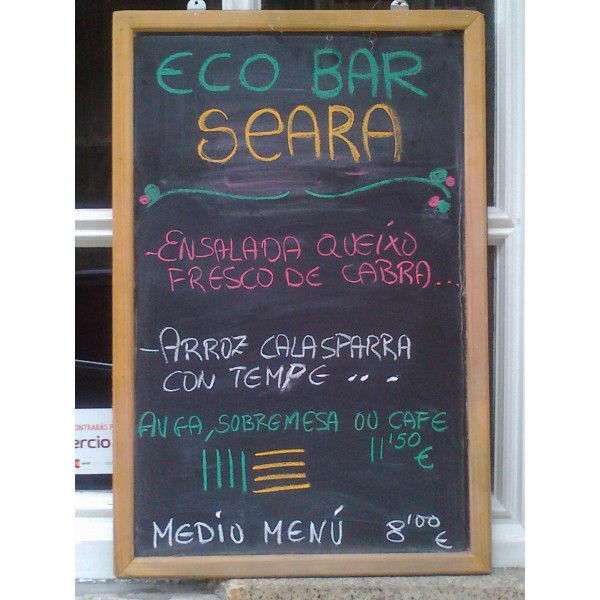 ECO BAR
SEARA
-ENSALADA QUEIXO
FRESCO DE CABRA...
-ARROZ CALASPARRA
CON TEMPE ...
AUGA, SOBREMESA OU CAFE
11'50
€
MEDIO MENÚ 8'00
€
ONTRARÁS
ercio